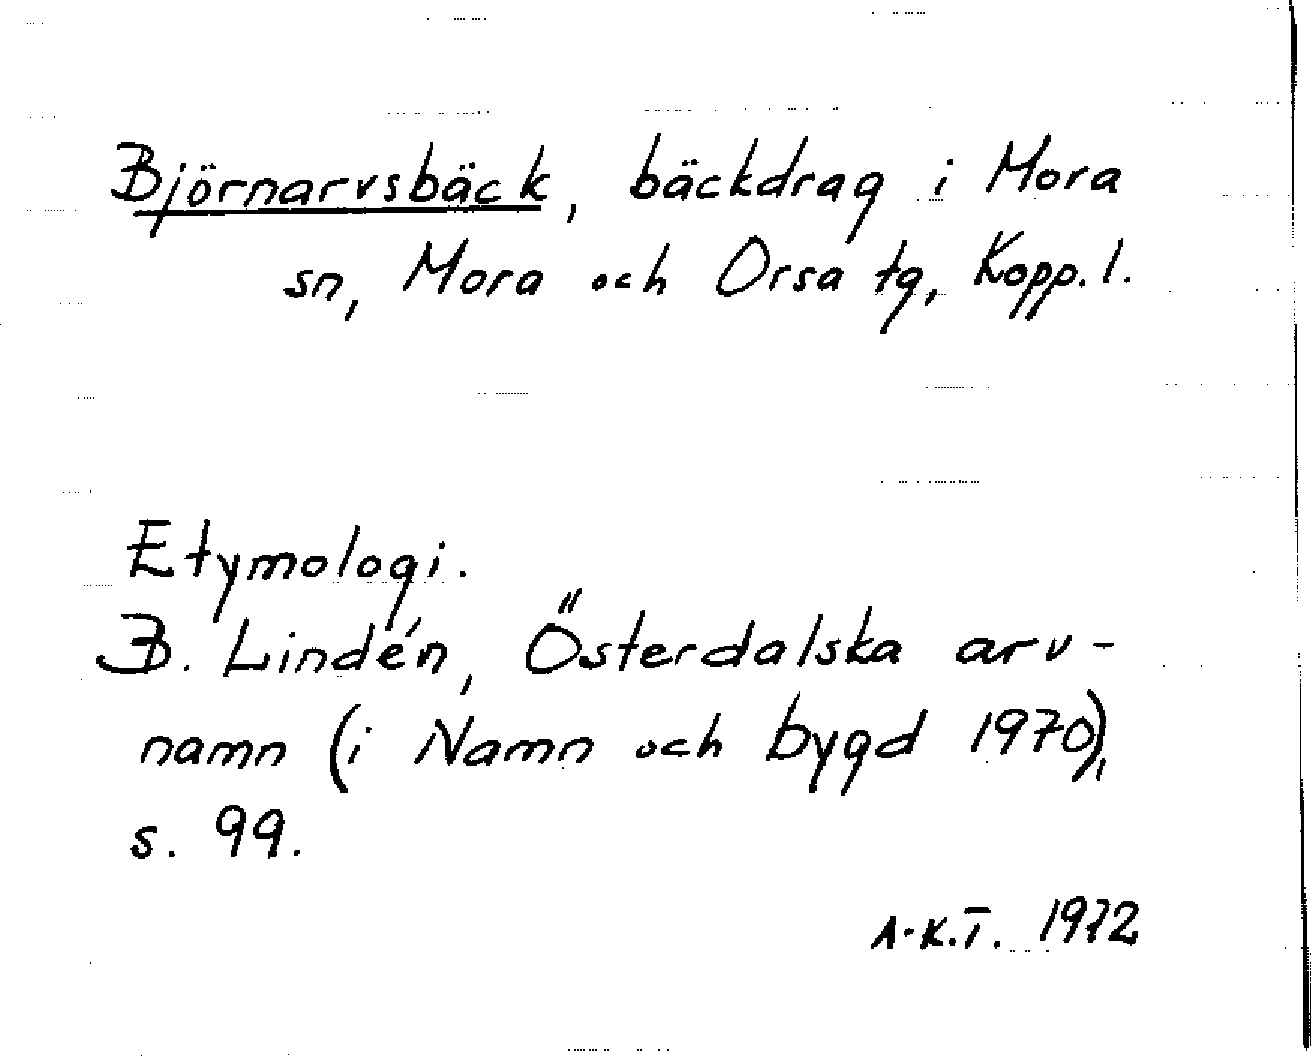 Björnarvsbäck, bäckdrag i Mora
sn, Mora och Orsa tg, Kopp. l.
Etymologi.
B. Lindén, Österdalska arv-
namn (i Namn och bygd 1970),
s. 99.
A-K.T. 1972